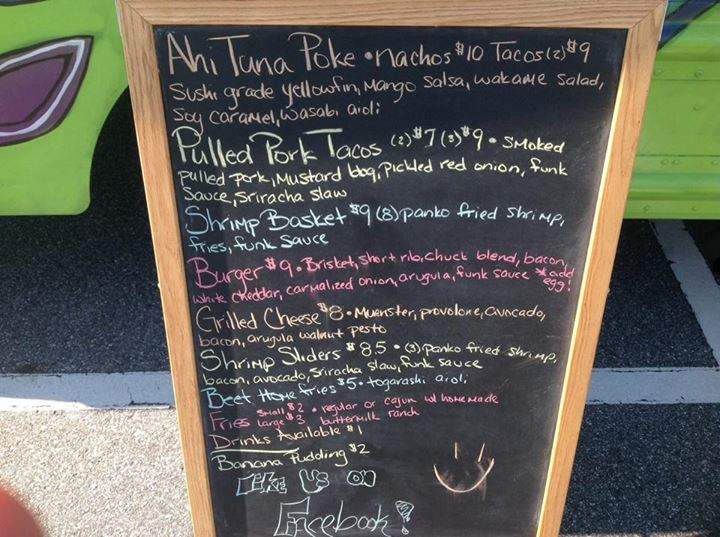 Ahi Tuna Poke • nachos $10 Tacos (2) $9
Sushi grade yellowfin, Mango Salsa, wakame Salad,
Soy caramel, wasabi aioli
Pulled Pork Tacos (2) $7 (3) $9 • Smoked
pulled pork, Mustard bbq, pickled red onion, funk
Sauce, Sriracha slaw
Shrimp Basket $9 (8) panko fried shrimp,
fries, funk Sauce
Burger $9 • Brisket, short rib, chuck blend, bacon,
white cheddar, carmalized onion, arugula, funk sauce * add egg!
Grilled Cheese $8 • Muenster, provolone, avacado,
bacon, arugula walnut pesto
Shrimp Sliders $8.5 • (3) panko fried shrimp,
bacon, avocado, Sriracha slaw, funk sauce
Beet Home fries $5 • togarashi aioli
Fries Small $2 • regular or cajun w/ homemade
Large $3 buttermilk ranch
Drinks Available $1
Banana Pudding $2
LIKE US ON
Facebook!